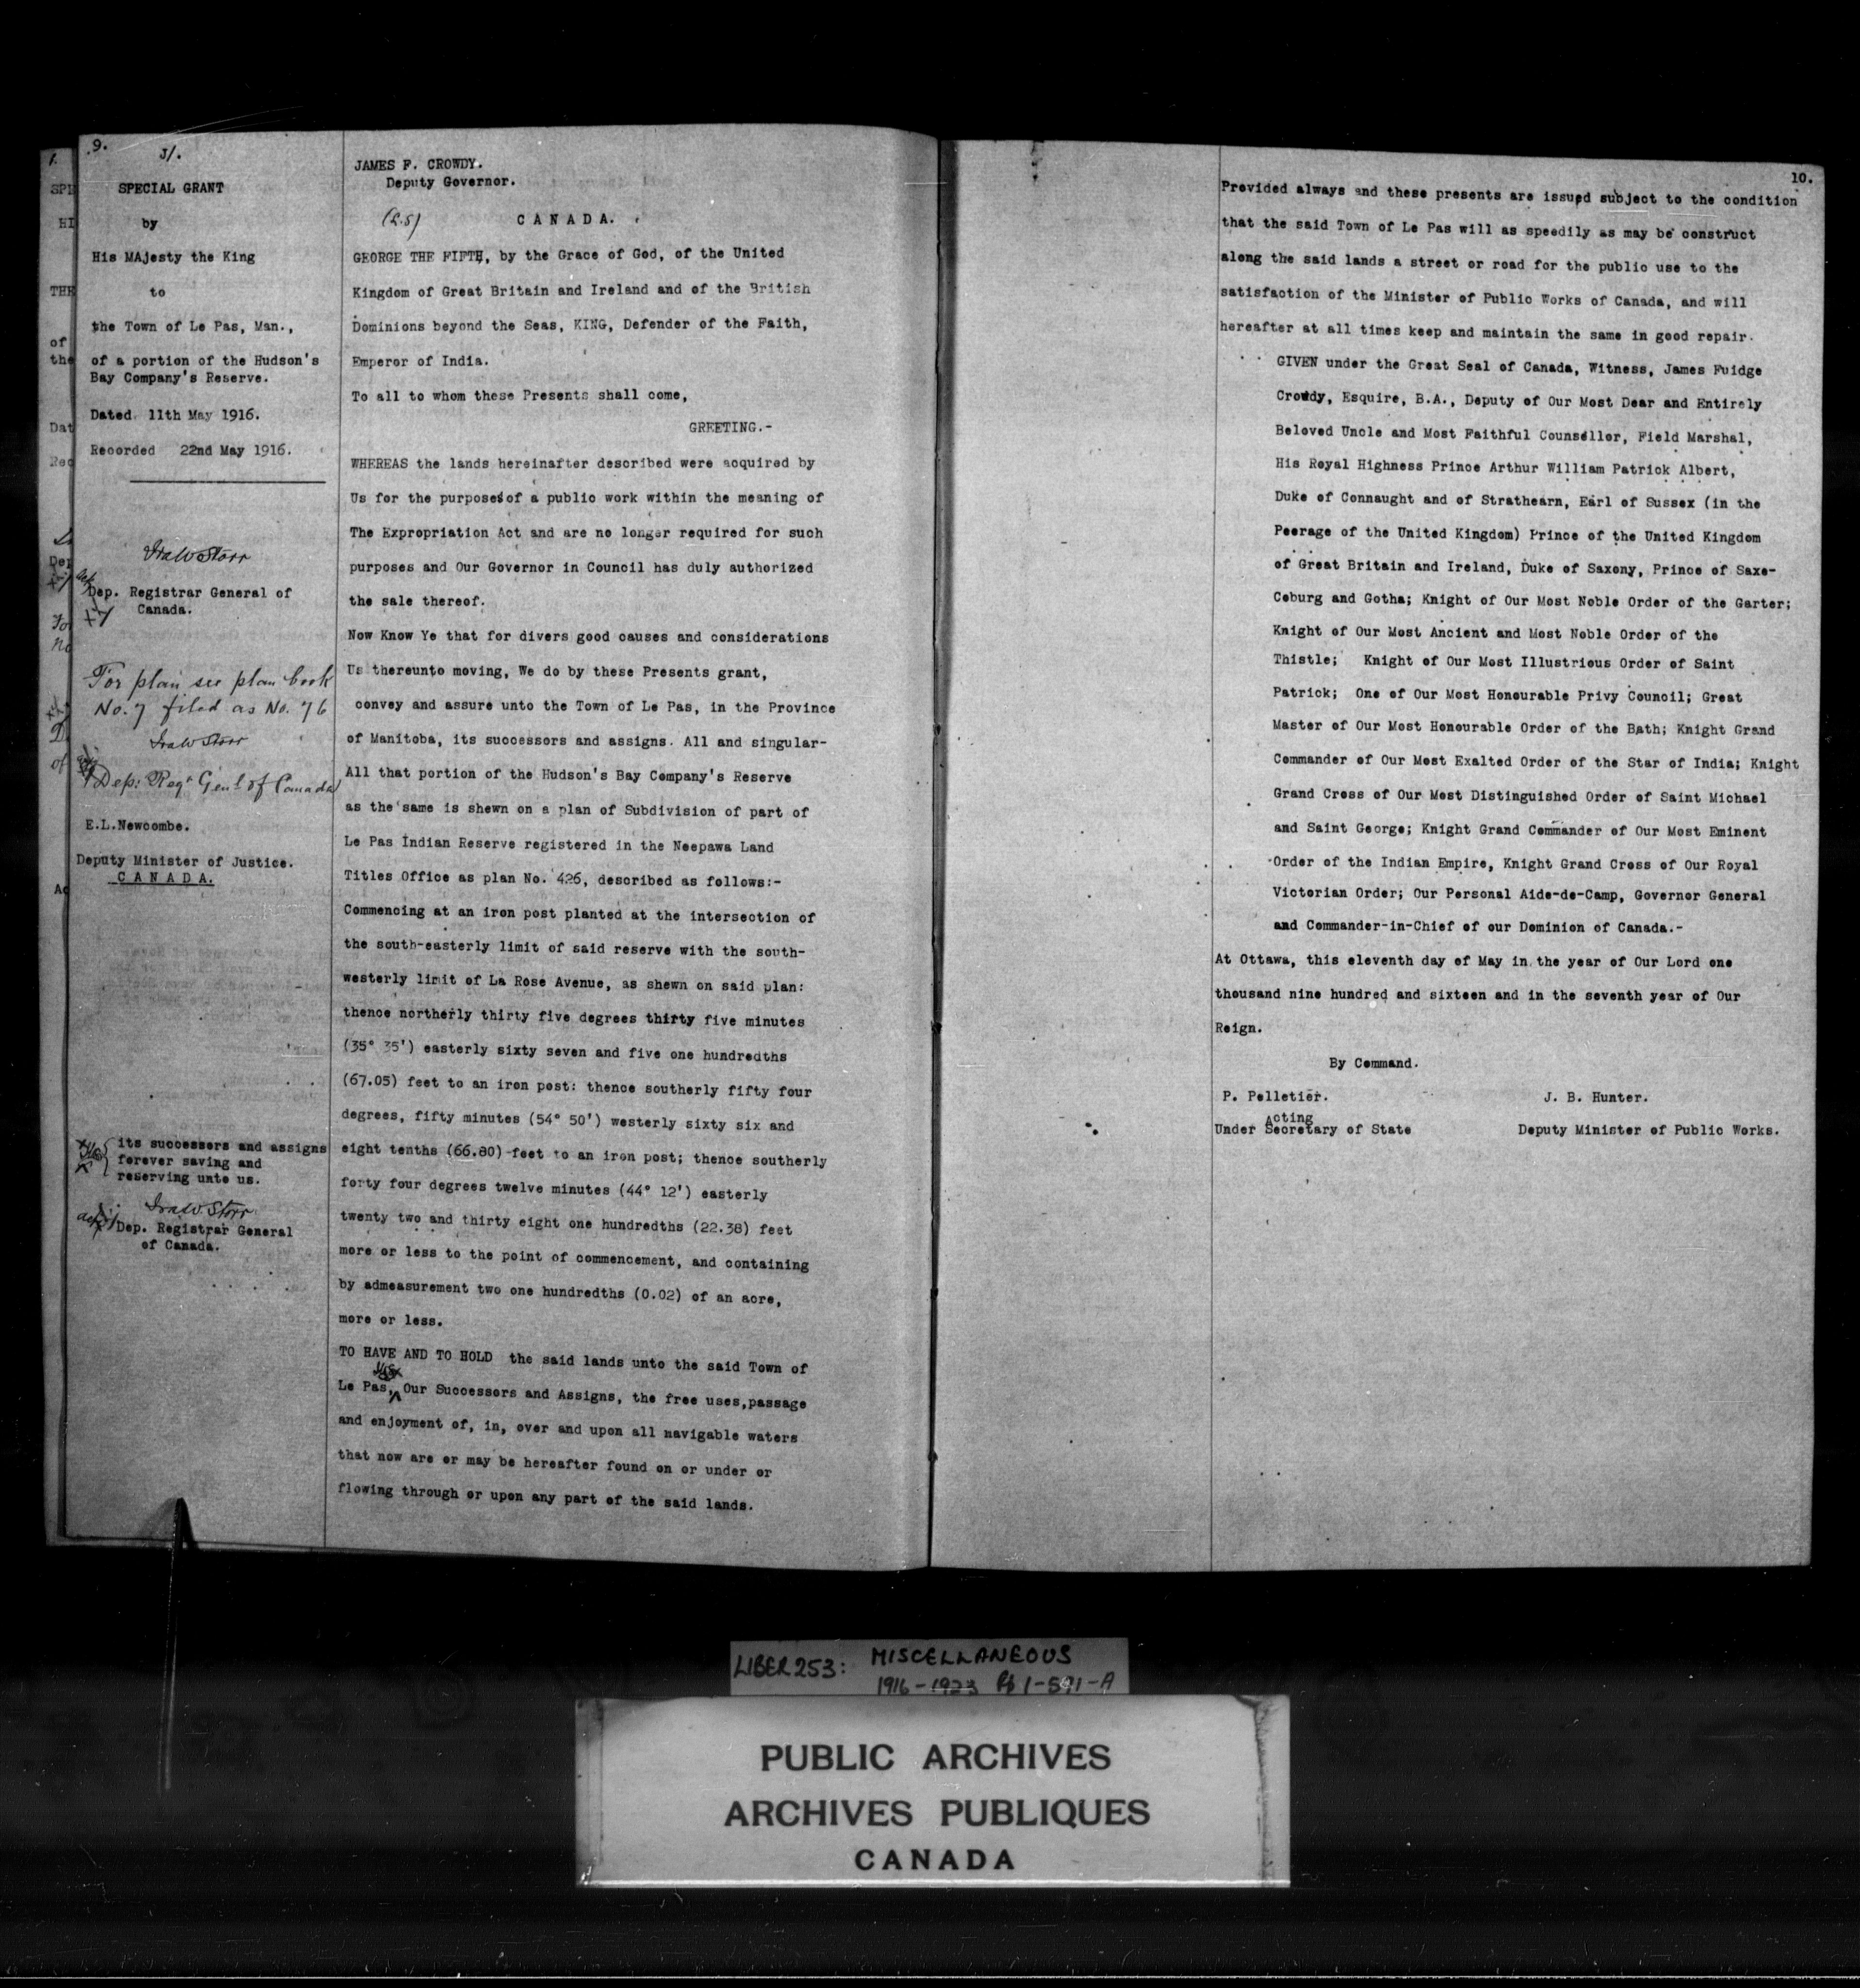 9.
SPECIAL GRANT
by
His MAjesty the King
to
the Town of Le Pas, Man.,
of a portion of the Hudson's
Bay Company's Reserve.
Dated 11th May 1916.
Recorded 22nd May 1916.
Ira W Storr
Dep. Registrar General of
Canada.
For plan see plan book
No. 7 filed as No. 76
Ira W Storr
Dep: Regr Genl of Canada
E.L.Newcombe.
Deputy Minister of Justice.
CANADA.
its successors and assigns
forever saving and
reserving unto us.
Ira W Storr
Dep. Registrar General
of Canada.
JAMES F. CROWDY.
Deputy Governor.
(L.S) CANADA.
GEORGE THE FIFTH, by the Grace of God, of the United
Kingdom of Great Britain and Ireland and of the British
Dominions beyond the Seas, KING, Defender of the Faith,
Emperor of India.
To all to whom these Presents shall come,
GREETING.-
WHEREAS the lands hereinafter described were acquired by
Us for the purposes of a public work within the meaning of
The Expropriation Act and are no longer required for such
purposes and Our Governor in Council has duly authorized
the sale thereof.
Now Know Ye that for divers good causes and considerations
Us thereunto moving, We do by these Presents grant,
convey and assure unto the Town of Le Pas, in the Province
of Manitoba, its successors and assigns. All and singular-
All that portion of the Hudson's Bay Company's Reserve
as the same is shewn on a plan of Subdivision of part of
Le Pas Indian Reserve registered in the Neepawa Land
Titles Office as plan No. 426, described as follows:-
Commencing at an iron post planted at the intersection of
the south-easterly limit of said reserve with the south-
westerly limit of La Rose Avenue, as shewn on said plan:
thence northerly thirty five degrees thirty five minutes
(35° 35') easterly sixty seven and five one hundredths
(67.05) feet to an iron post: thence southerly fifty four
degrees, fifty minutes (54° 50') westerly sixty six and
eight tenths (66.80) feet to an iron post; thence southerly
forty four degrees twelve minutes (44° 12') easterly
twenty two and thirty eight one hundredths (22.38) feet
more or less to the point of commencement, and containing
by admeasurement two one hundredths (0.02) of an acre,
more or less.
TO HAVE AND TO HOLD the said lands unto the said Town of
Le Pas, Our Successors and Assigns, the free uses,passage
and enjoyment of, in, over and upon all navigable waters
that now are or may be hereafter found on or under or
flowing through or upon any part of the said lands.
10.
Provided always and these presents are issued subject to the condition
that the said Town of Le Pas will as speedily as may be construct
along the said lands a street or road for the public use to the
satisfaction of the Minister of Public Works of Canada, and will
hereafter at all times keep and maintain the same in good repair.
GIVEN under the Great Seal of Canada, Witness, James Fuidge
Crowdy, Esquire, B.A., Deputy of Our Most Dear and Entirely
Beloved Uncle and Most Faithful Counsellor, Field Marshal,
His Royal Highness Prince Arthur William Patrick Albert,
Duke of Connaught and of Strathearn, Earl of Sussex (in the
Peerage of the United Kingdom) Prince of the United Kingdom
of Great Britain and Ireland, Duke of Saxony, Prince of Saxe-
Coburg and Gotha; Knight of Our Most Noble Order of the Garter;
Knight of Our Most Ancient and Most Noble Order of the
Thistle; Knight of Our Most Illustrious Order of Saint
Patrick; One of Our Most Honourable Privy Council; Great
Master of Our Most Honourable Order of the Bath; Knight Grand
Commander of Our Most Exalted Order of the Star of India; Knight
Grand Cross of Our Most Distinguished Order of Saint Michael
and Saint George; Knight Grand Commander of Our Most Eminent
Order of the Indian Empire, Knight Grand Cross of Our Royal
Victorian Order; Our Personal Aide-de-Camp, Governor General
and Commander-in-Chief of our Dominion of Canada.-
At Ottawa, this eleventh day of May in the year of Our Lord one
thousand nine hundred and sixteen and in the seventh year of Our
Reign.
By Command.
P. Pelletier. J. B. Hunter.
Acting
Under Secretary of State Deputy Minister of Public Works.
LIBER 253: MISCELLANEOUS
1916-1923 1-591-A
PUBLIC ARCHIVES
ARCHIVES PUBLIQUES
CANADA